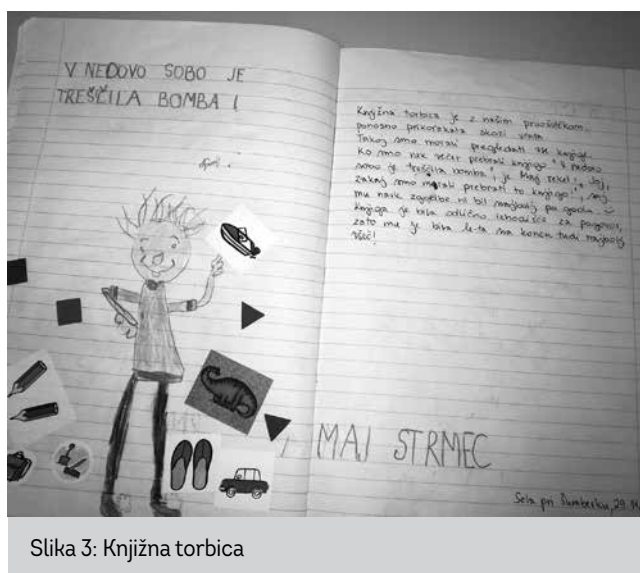 V NEDOVO SOBO JE
TREŠČILA BOMBA!
Knjižna torbica je z našim prvošolčkom
ponosno prikorakala skozi vrata.
Takoj smo morali pregledati vse knjige.
Ko smo nek večer prebrali knjigo "V nedovo
sobo je treščila bomba", je Maj rekel: "Joj,
zakaj smo morali prebrati to knjigo", saj
mu naziv zgodbe ni bil najbolj po godu
Knjiga je bila odlično izhodišče za pogovor,
zato mu je bila le-ta na koncu tudi najbolj
všeč!
MAJ STRMEC
Sela pri Šumberku, 29.
Slika 3: Knjižna torbica